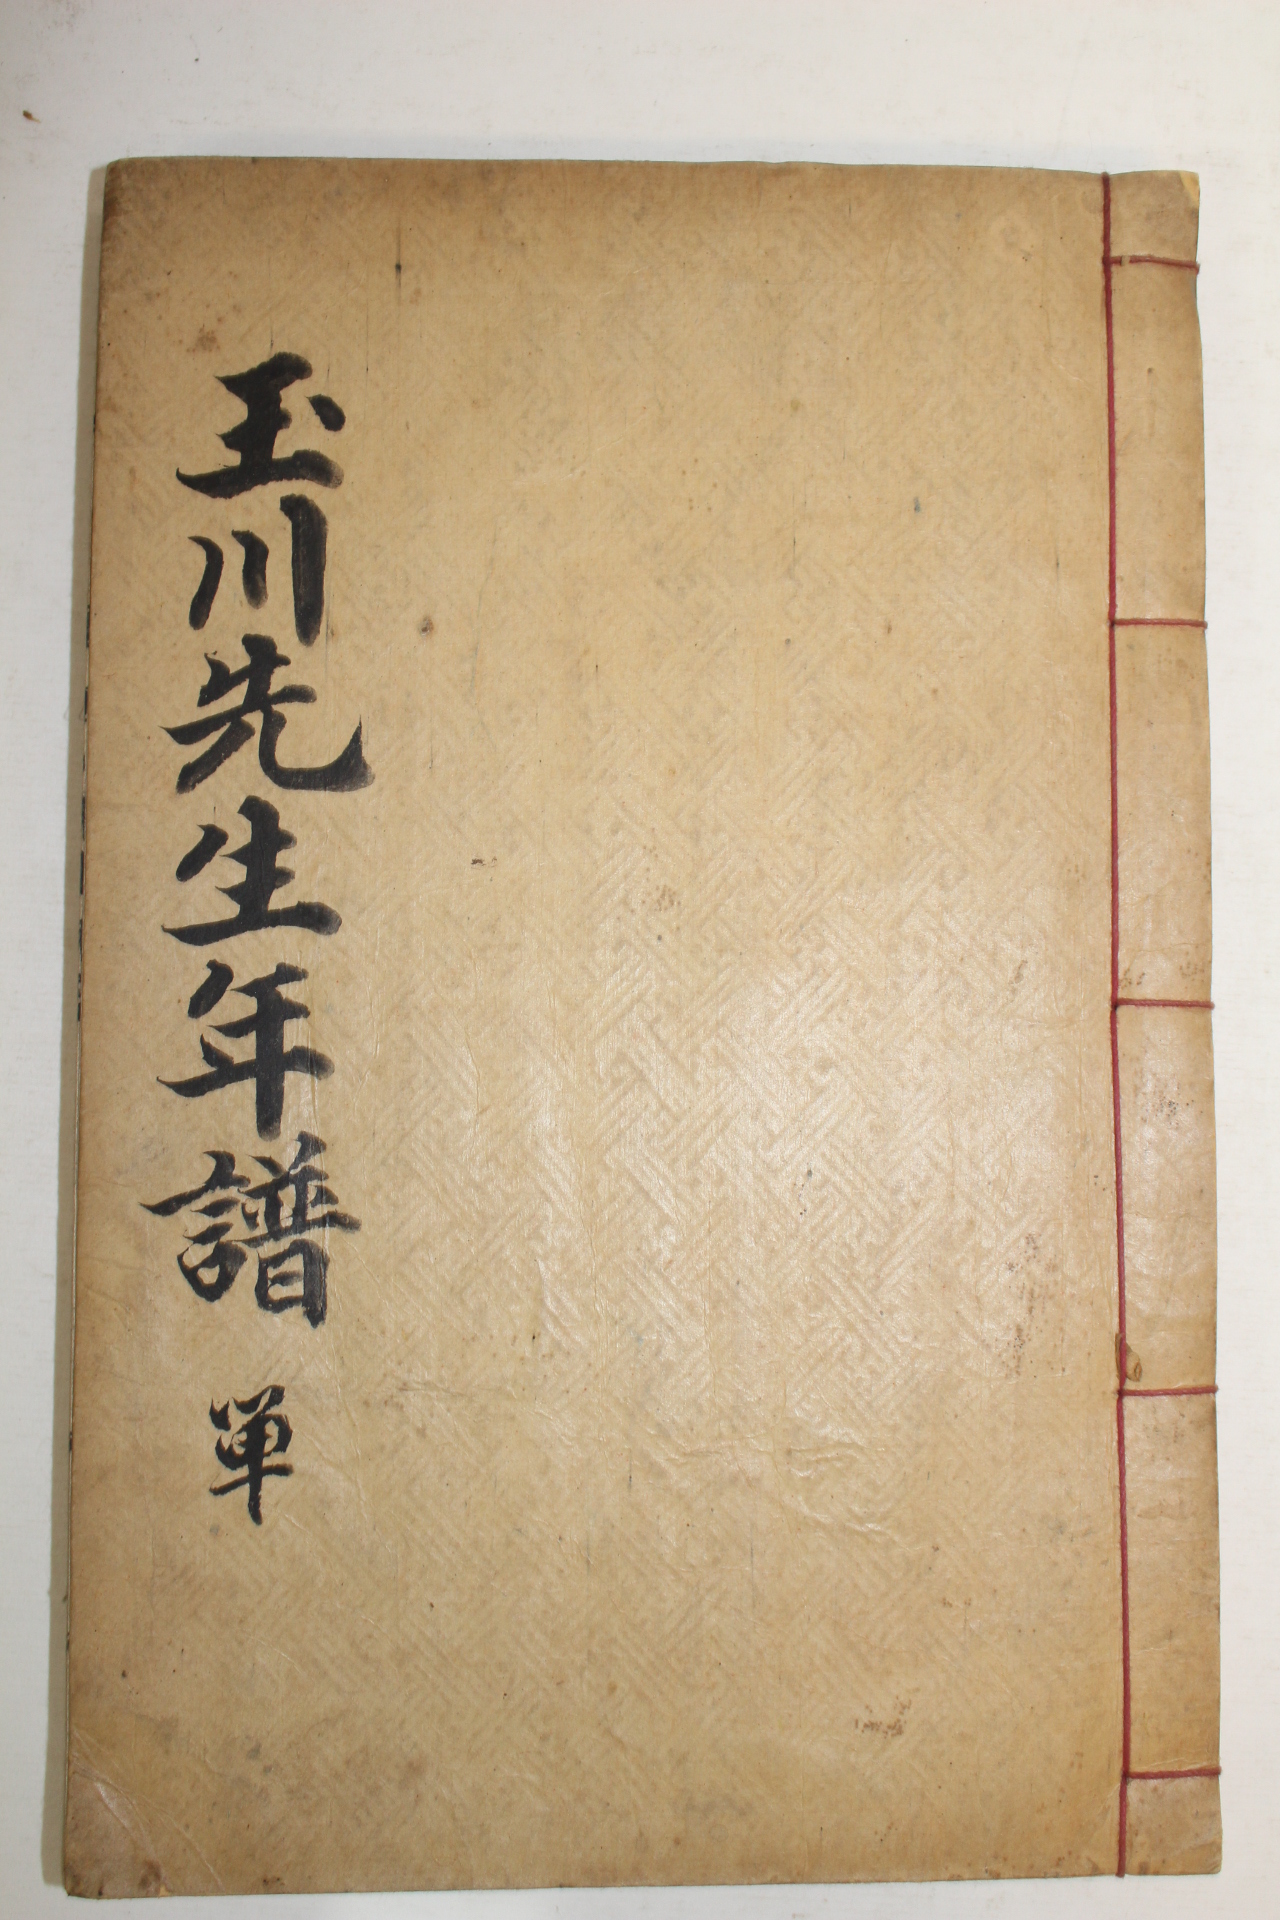 玉川先生年譜 単